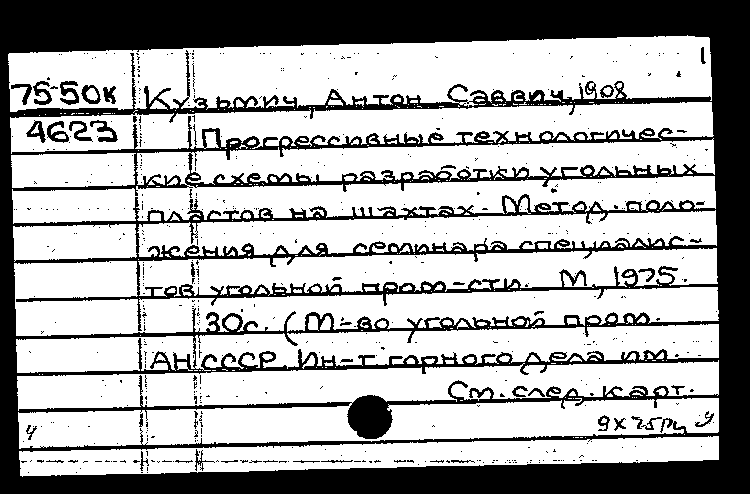 1
75-50к Кузьмич, Антон Саввич, 1908
4623 Прогрессивные технологичес-
кие схемы разработки угольных
пластов на шахтах. Метод. поло-
жения для семинара специалис-
тов угольной пром-сти. М., 1975.
30с. (М-во угольной пром.
АН СССР. Ин-т горного дела им.
См. след. карт.